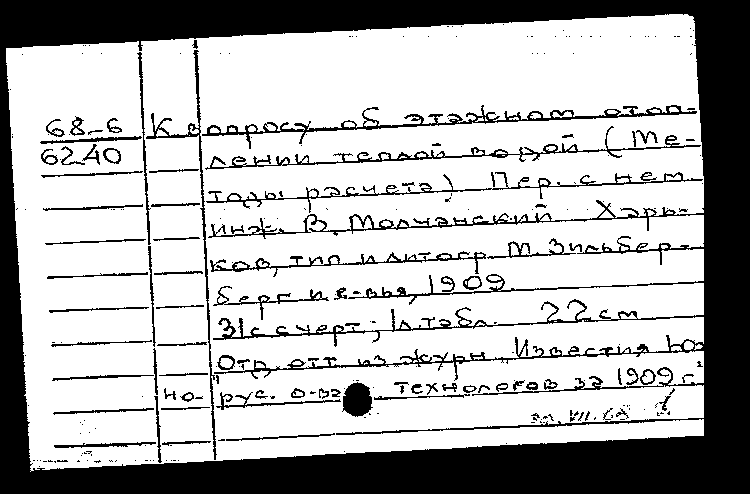 68-6 К вопросу об этажном отоп-
6240 лении теплой водой (Ме-
тоды расчета) Пер. с нем.
инж. В. Молчанский Харь-
ков, тип и литогр. М. Зильбер-
берг и с-вья, 1909.
31с с черт; 1л. табл. 22 см
Отд. отт. из журн "Известия Юж
но- рус. о-ва технологов за 1909 г."
VII. 68